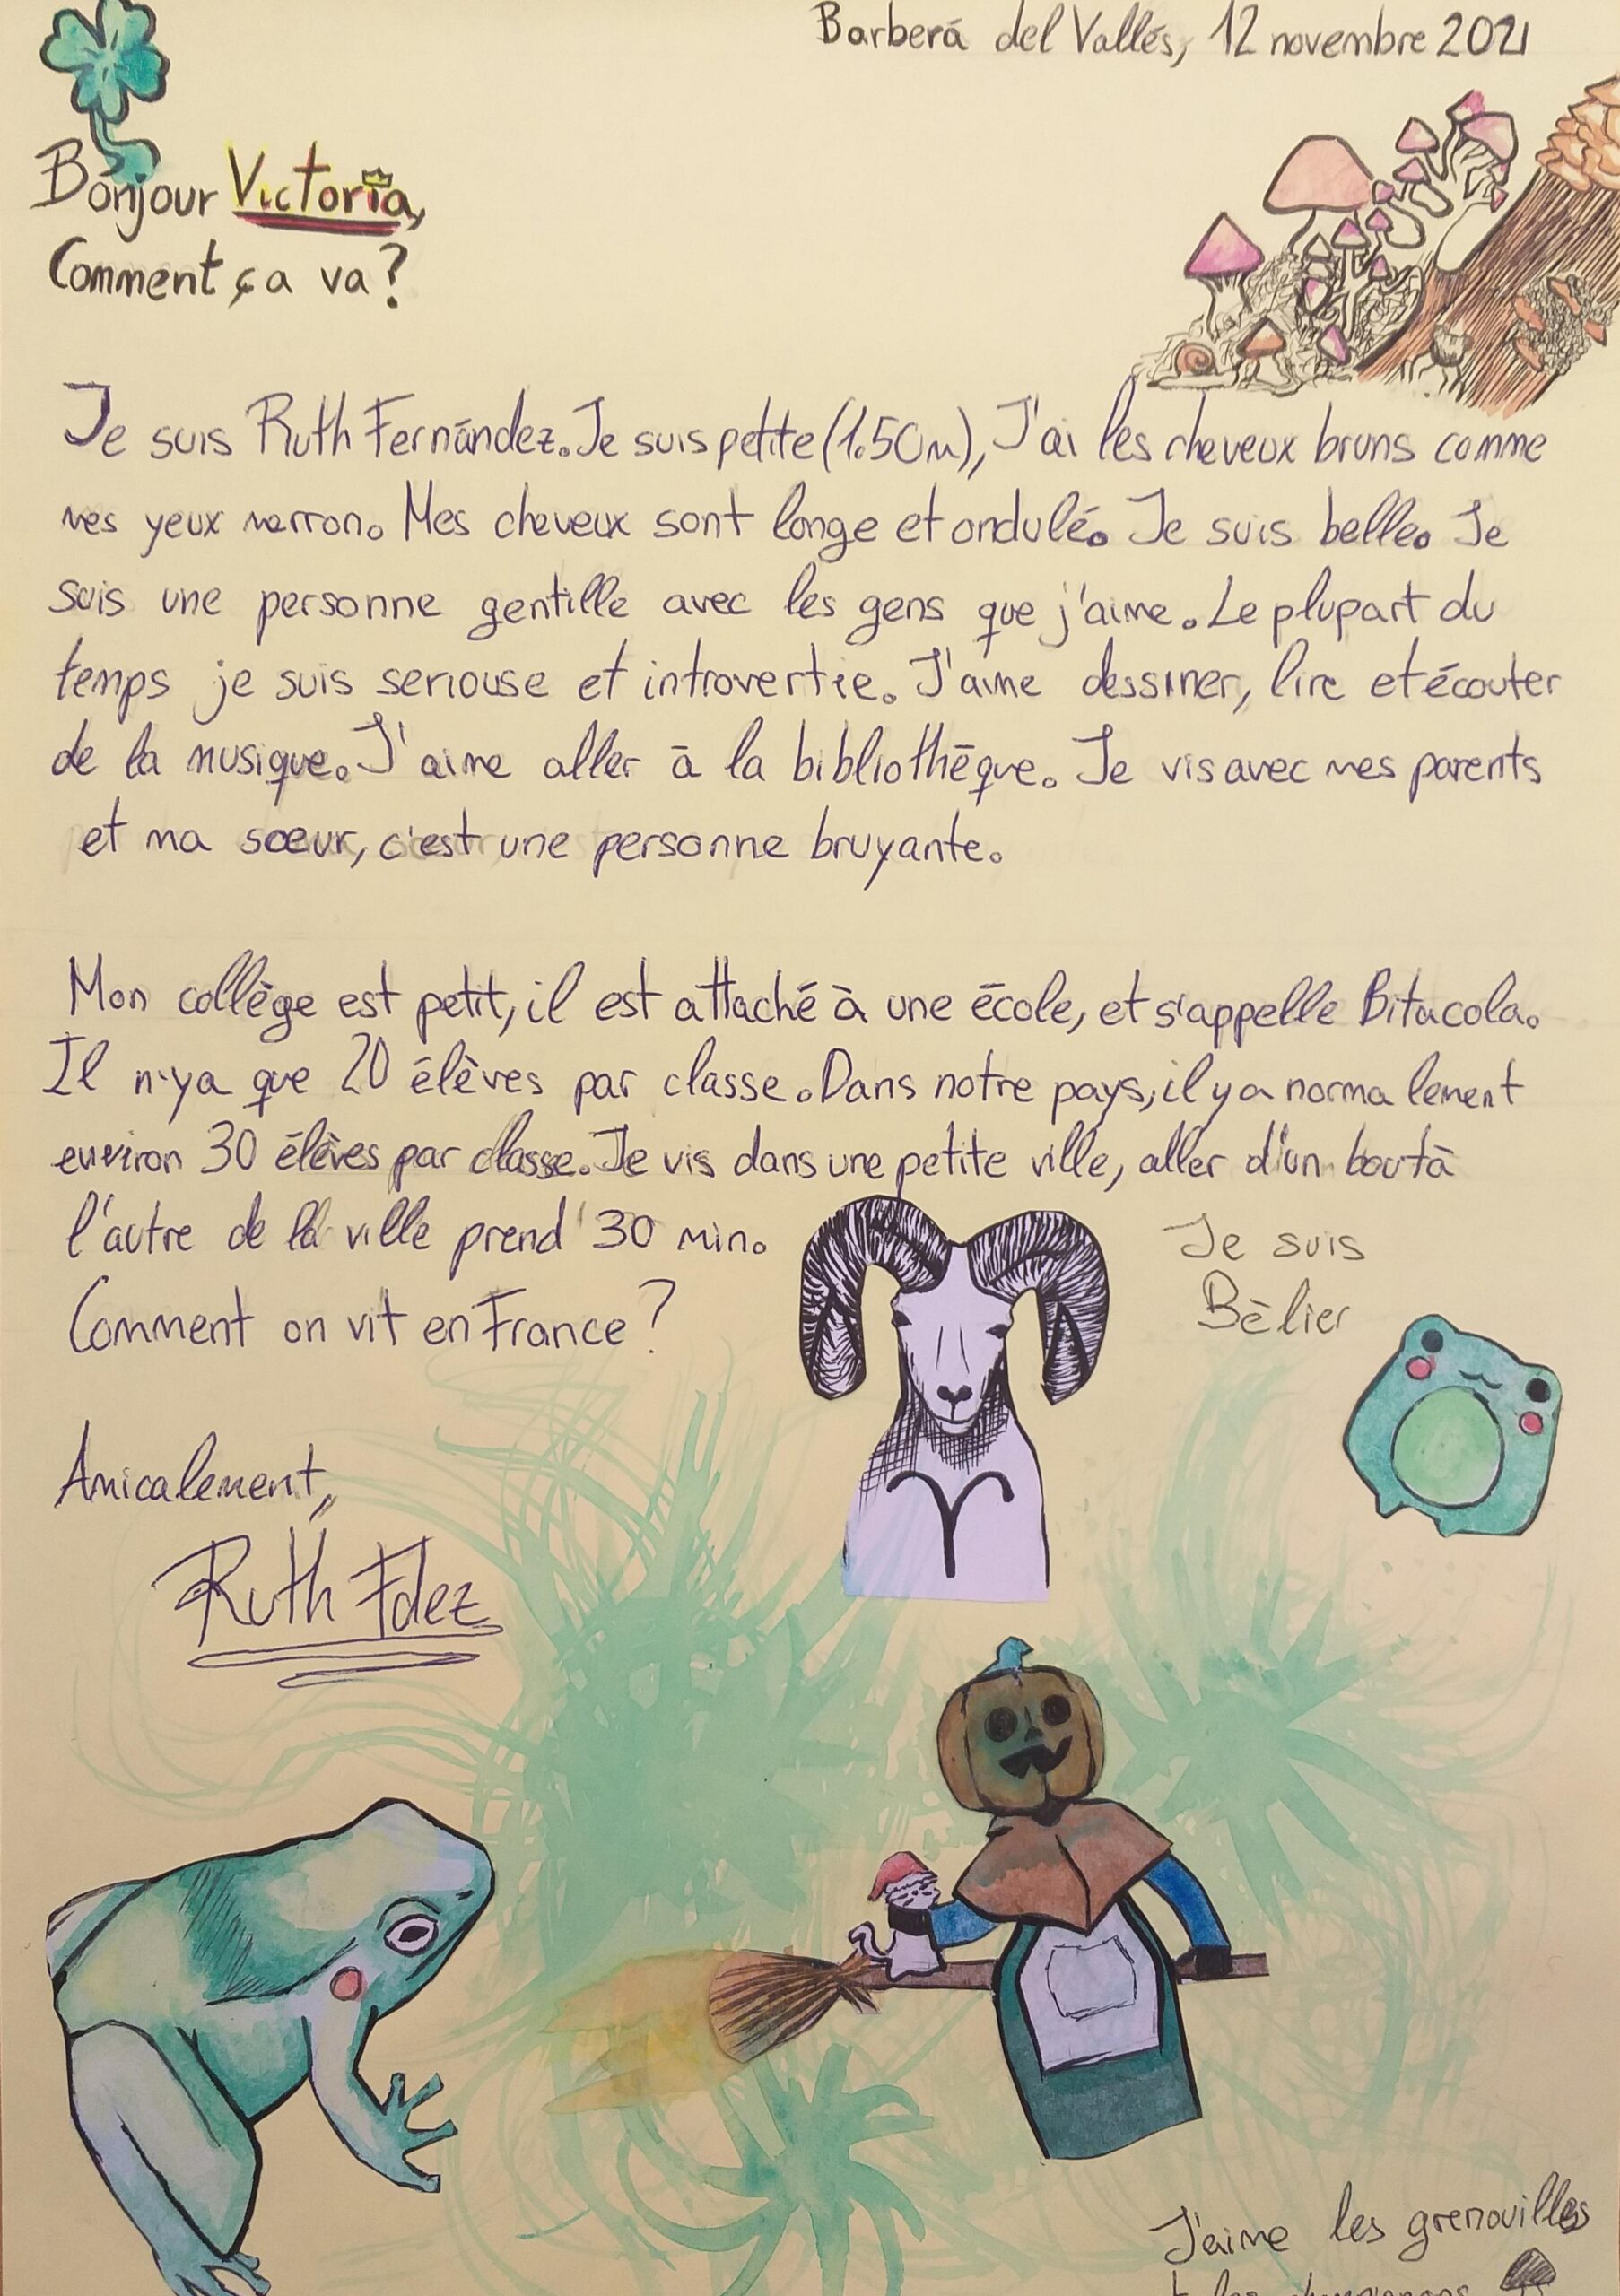 Barberá del Vallés, 12 novembre 2021
Bonjour Victoria,
Comment ça va?
Je suis Ruth Fernández. Je suis petite (1.50m), J'ai les cheveux bruns comme
mes yeux marron. Mes cheveux sont longe et ondulé. Je suis belle. Je
suis une personne gentille avec les gens que j'aime. Le plupart du
temps je suis seriouse et introvertie. J'aime dessiner, lire et écouter
de la musique. J'aime aller à la bibliothēque. Je vis avec mes parents
et ma sœur, c'est une personne bruyante.
Mon collège est petit, il est attaché à une école, et s'appelle Bitacola.
Il n'ya que 20 élèves par classe. Dans notre pays, il y a normalement
environ 30 élèves par classe. Je vis dans une petite ville, aller d'un bout à
l'autre de la ville prend 30 min.
Comment on vit en France?
Je suis
Bèlier
Amicalement,
Ruth Fdez
J'aime les grenouilles